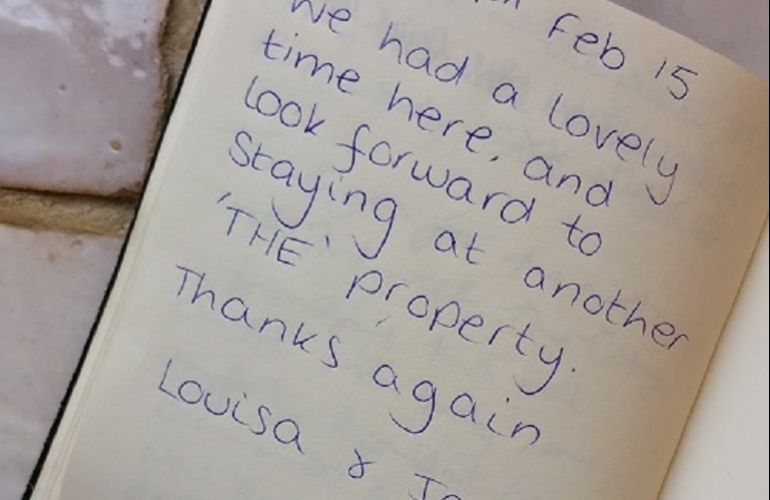 Feb 15
We had a lovely
time here, and
look forward to
Staying at another
'THE' property.
Thanks again
Louisa &